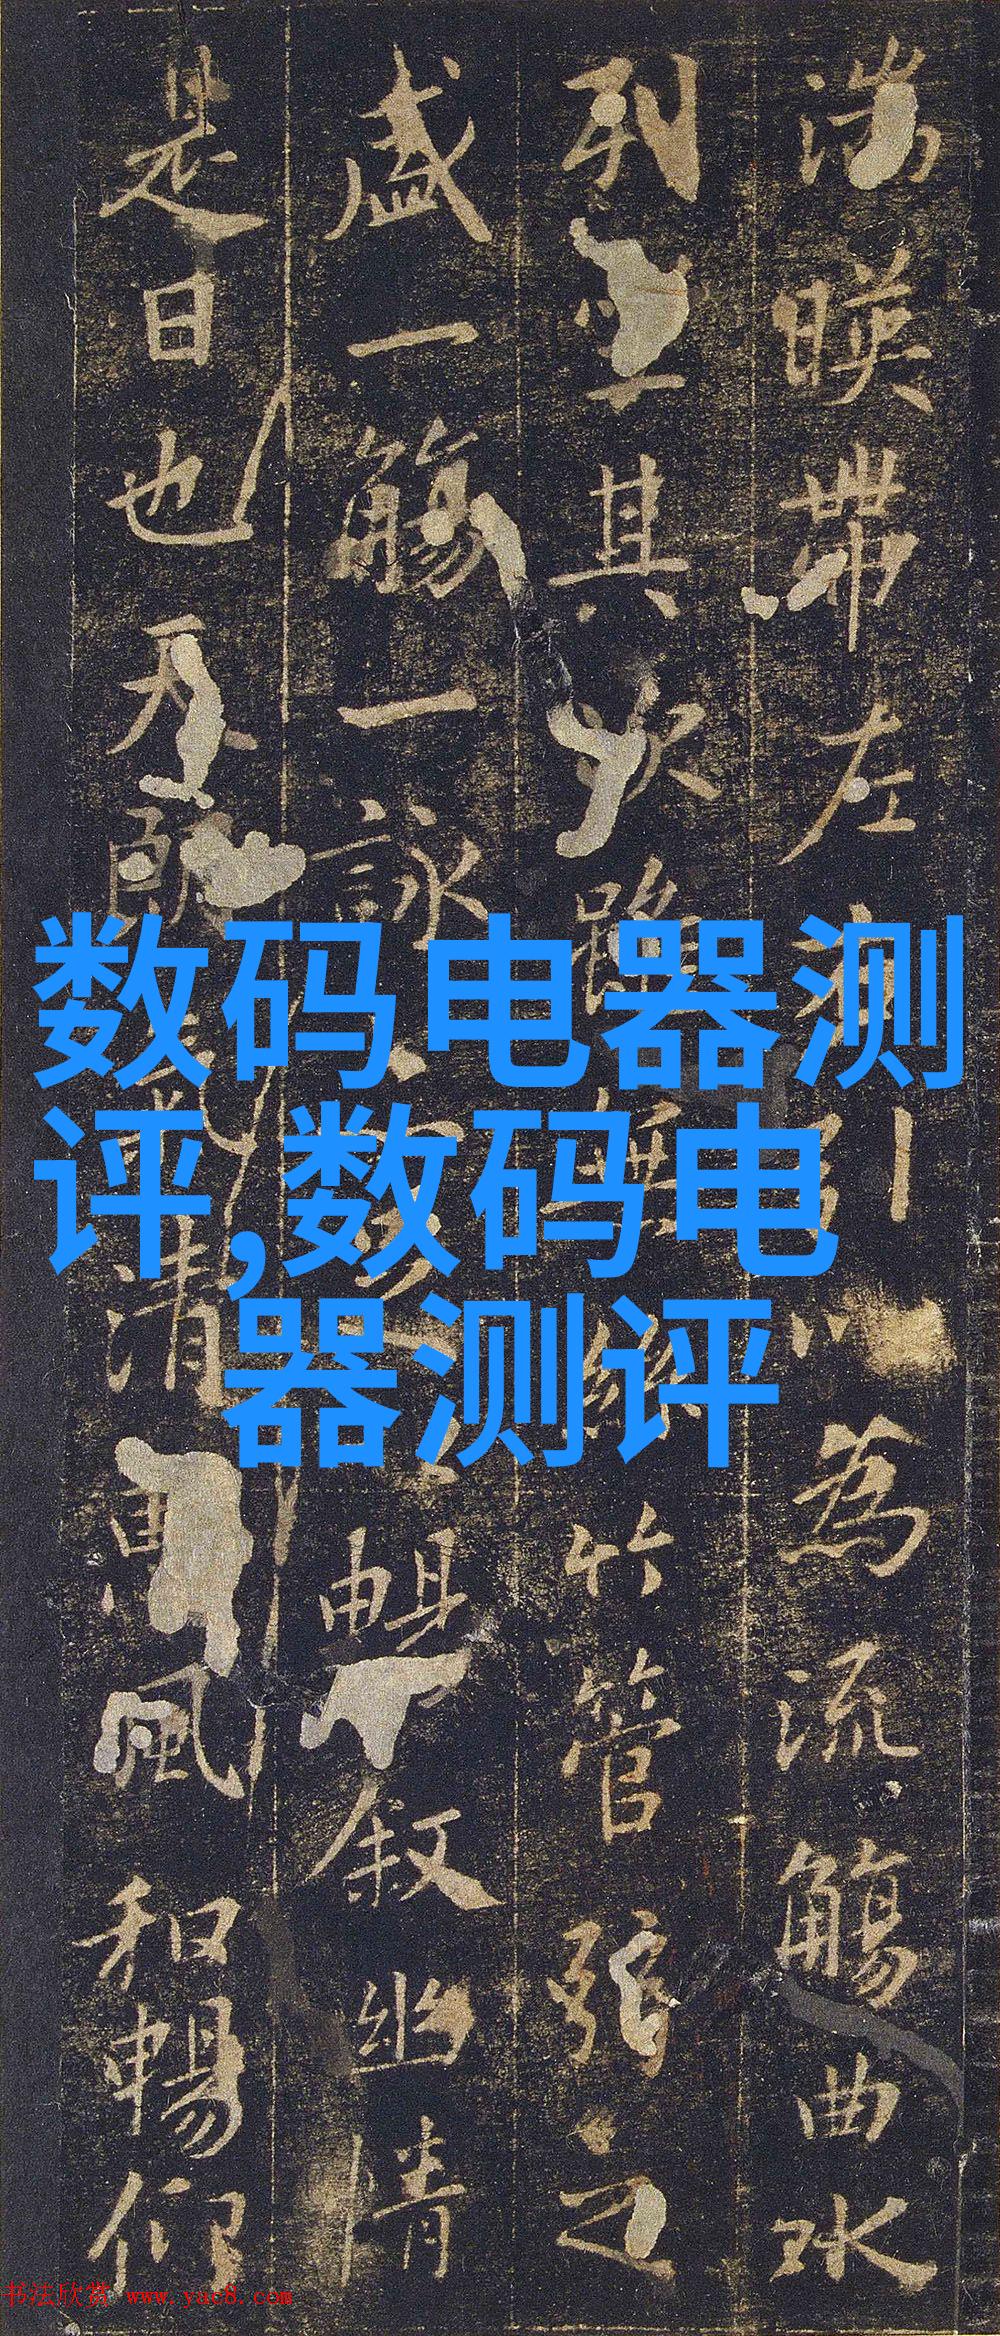 湍暎帶左右引以為流觴曲水
列坐其次雖無絲竹管弦之
盛一觴一詠以暢叙幽情
是日也天朗氣清惠風和暢仰
数码电器测
评,数码电
器测评
书法欣赏 www.yac8.com